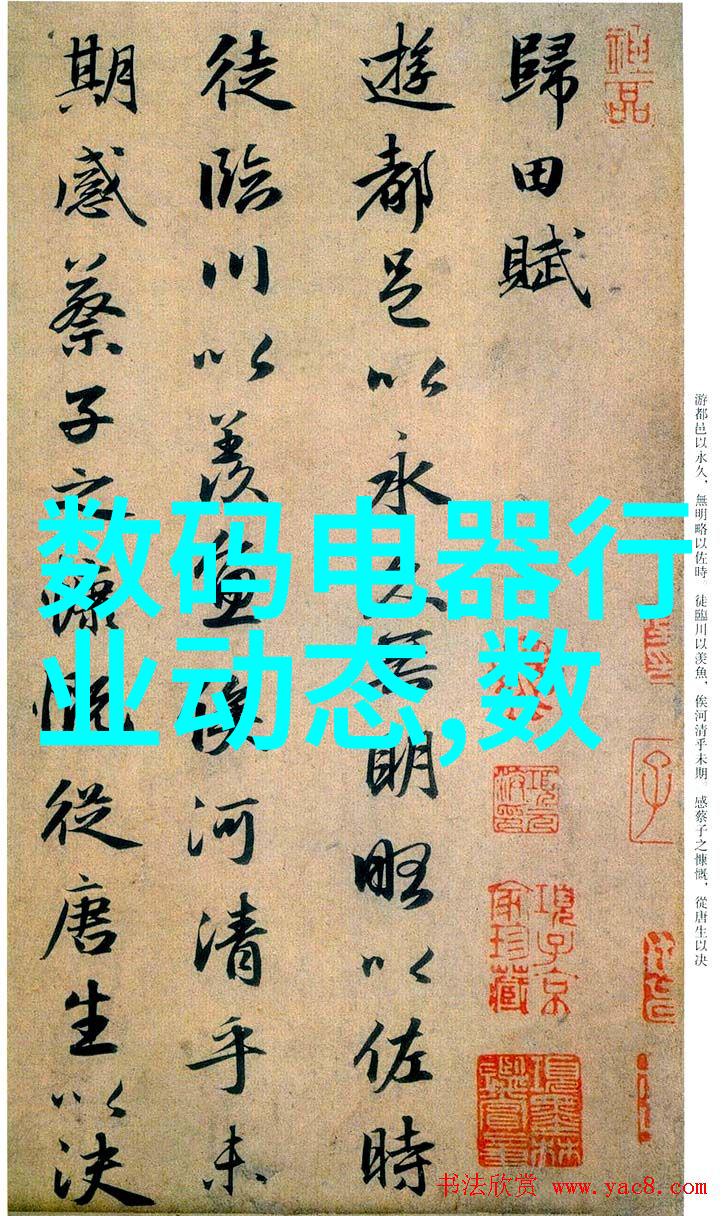 歸田賦
遊都邑以永久無明略以佐時
徒臨川以羨魚俟河清乎未
期感蔡子之慷慨從唐生以決
数码电器行
业动态,数
游都邑以永久，無明略以佐時。徒臨川以羨魚，俟河清乎未期。感蔡子之慷慨，從唐生以决
神品
項子京家珍藏
項墨林鑑賞章
书法欣赏 www.yac8.com